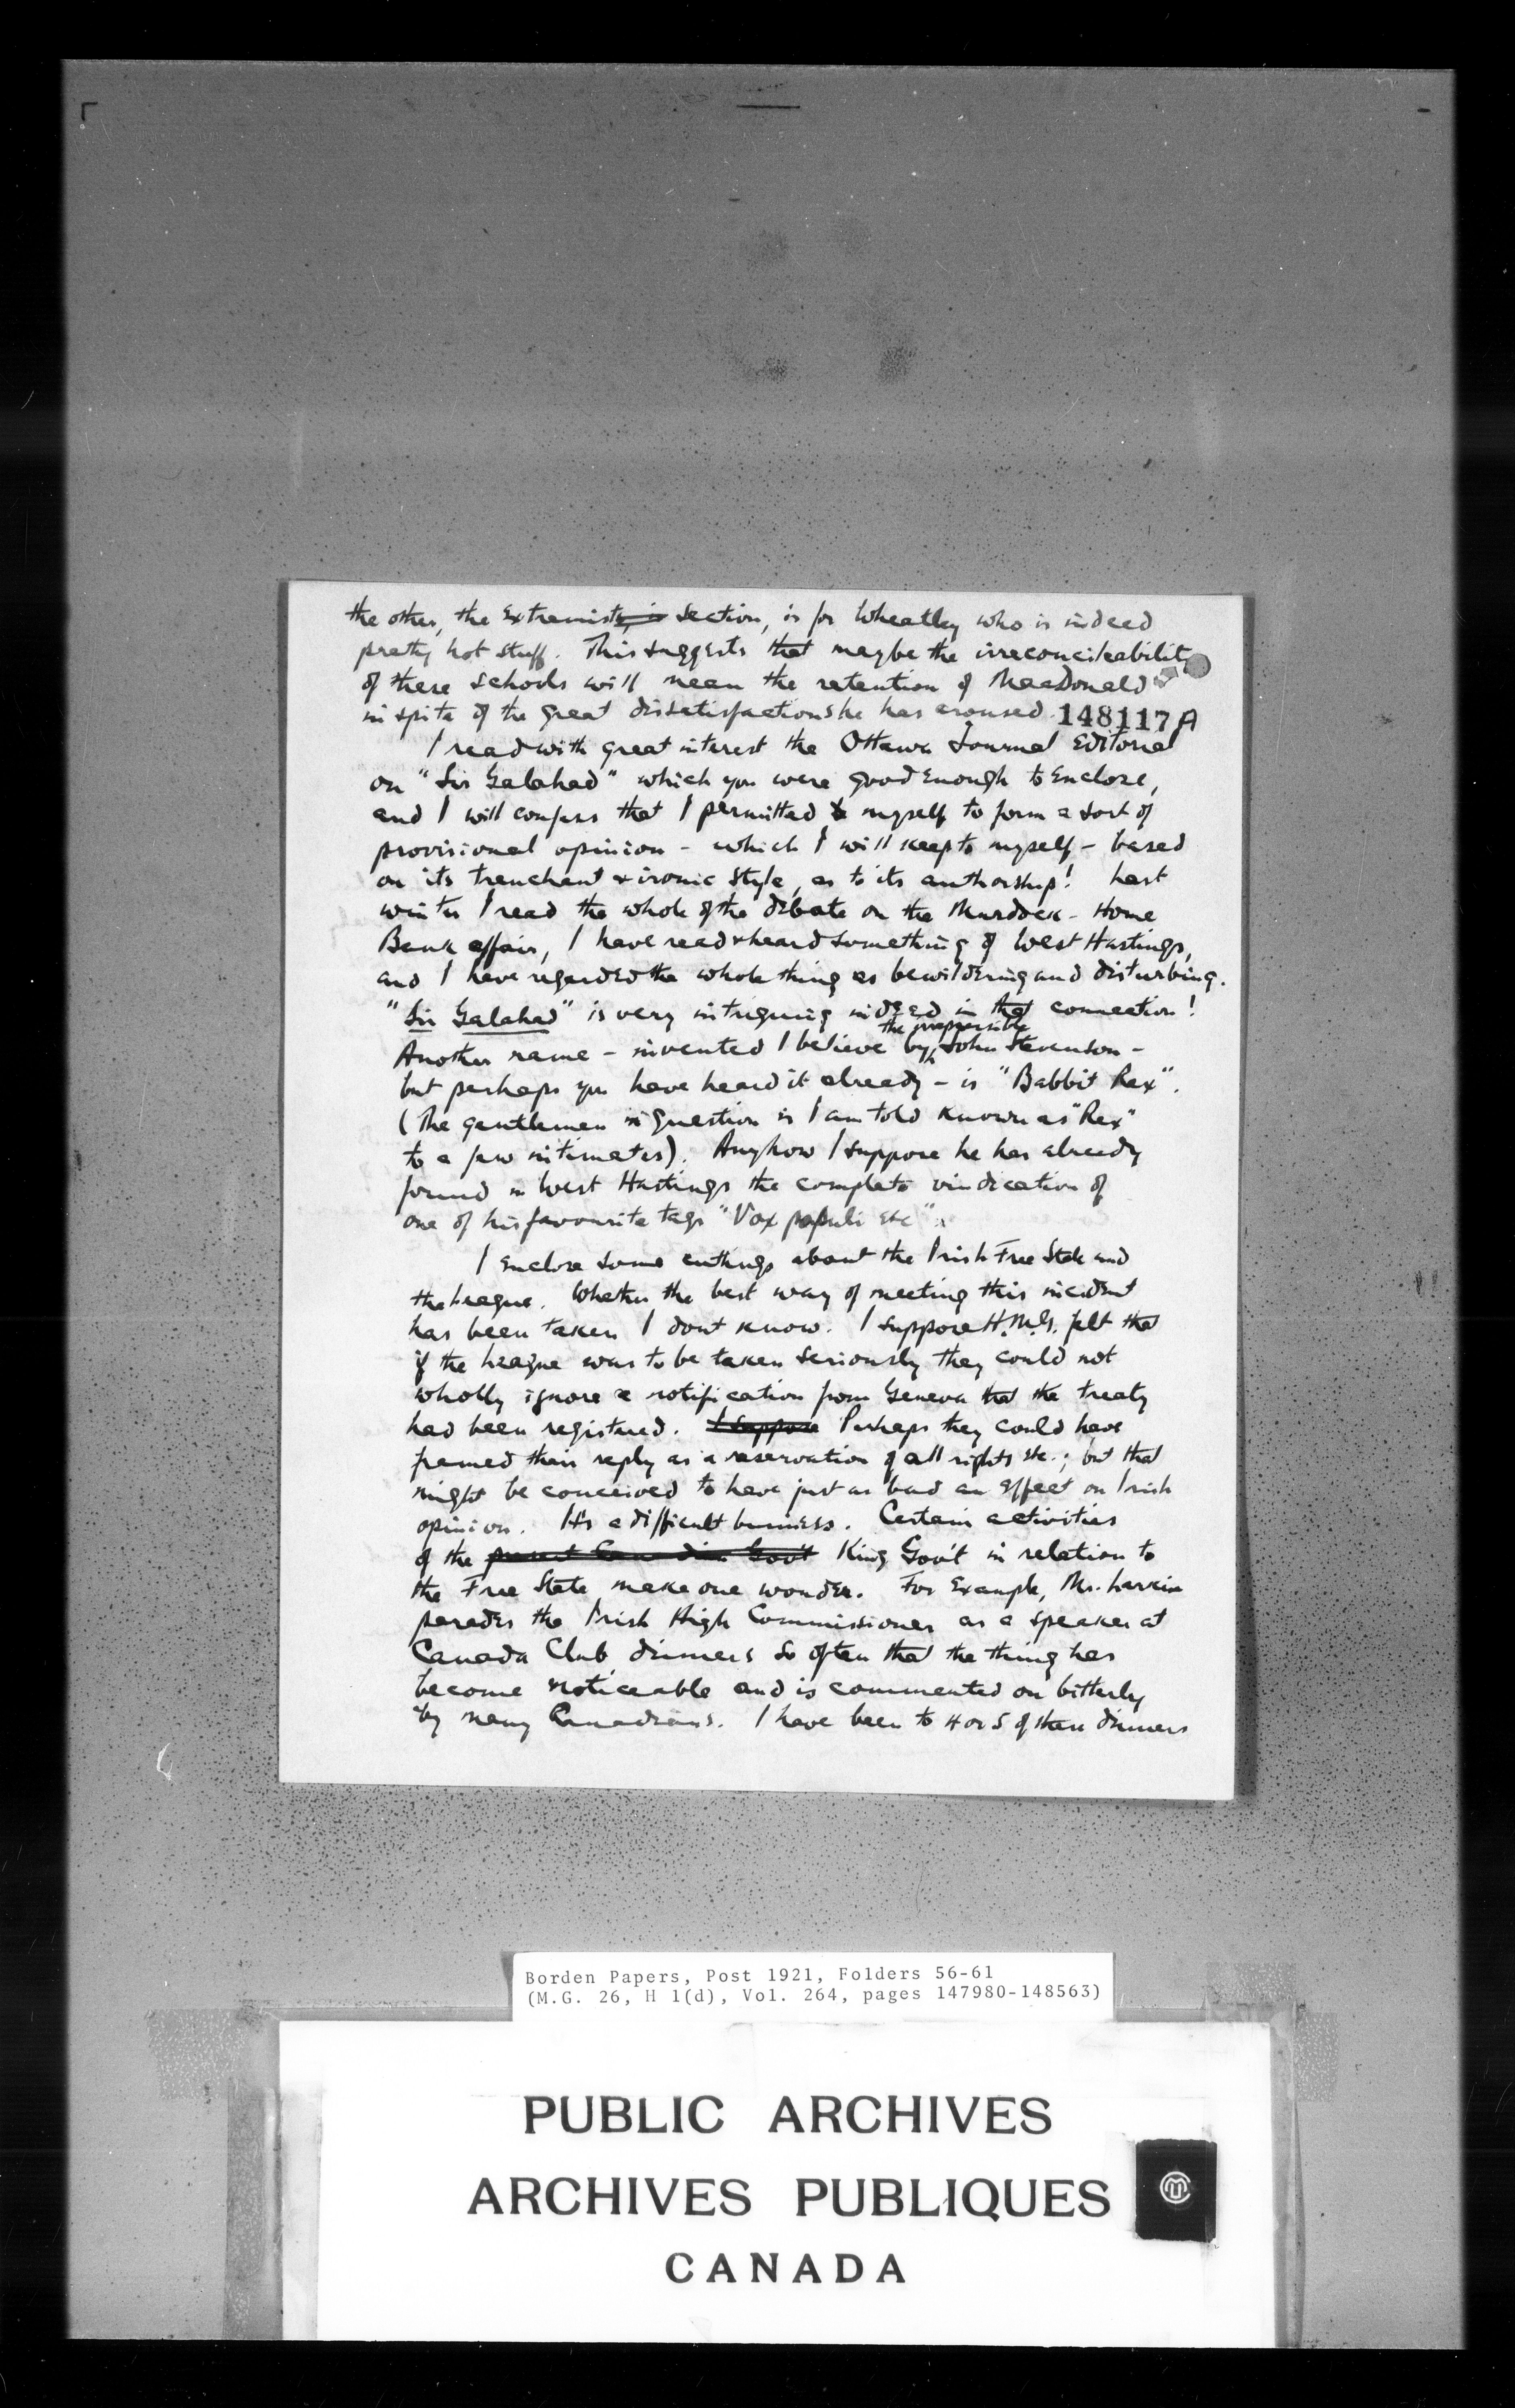 the other, the extremists, is section, is for Wheatley who is indeed
pretty hot stuff. This suggests that maybe the irreconcileability
of these schools will mean the retention of MacDonald
in spite of the great dissatisfactions he has aroused.
148117A
I read with great interest the Ottawa Journal editorial
on "Sir Galahad" which you were good enough to enclose,
and I will confess that I permitted myself to form a sort of
provisional opinion - which I will keep to myself - based
on its trenchant & ironic style, as to its authorship! Last
winter I read the whole of the debate on the Murdock-Home
Bank affair, I have read & heard something of West Hastings,
and I have regarded the whole thing as bewildering and disturbing.
"Sir Galahad" is very intriguing indeed in that connection!
Another name - invented I believe by the irrepressible John Stevenson -
but perhaps you have heard it already - is "Babbit Rex".
(The gentleman in question is I am told known as "Rex"
to a few intimates). Anyhow I suppose he has already
found in West Hastings the complete vindication of
one of his favourite tags "Vox populi etc".
I enclose some cuttings about the Irish Free State and
the League. Whether the best way of meeting this incident
has been taken I dont know. I suppose H.M.G. felt that
if the League was to be taken seriously they could not
wholly ignore a notification from Geneva that the treaty
had been registered. I suppose Perhaps they could have
framed their reply as a reservation of all rights etc.; but that
might be conceived to have just as bad an effect on Irish
opinion. It's a difficult business. Certain activities
of the present Canadian Gov't King Gov't in relation to
the Free State make one wonder. For example, Mr. Larkin
parades the Irish High Commissioner as a speaker at
Canada Club dinners so often that the thing has
become noticeable and is commented on bitterly
by many Canadians. I have been to 4 or 5 of these dinners
Borden Papers, Post 1921, Folders 56-61
(M.G. 26, H 1(d), Vol. 264, pages 147980-148563)
PUBLIC ARCHIVES
ARCHIVES PUBLIQUES
CANADA